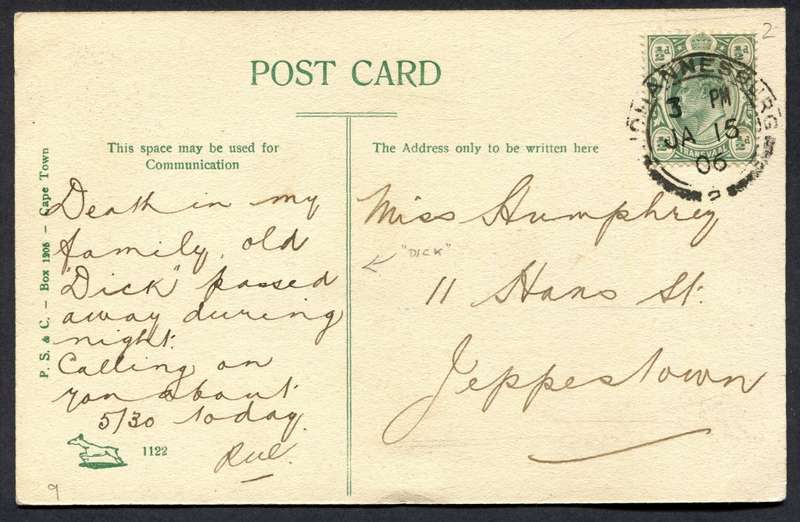 2
POST CARD
This space may be used for
Communication
The Address only to be written here
P. S. & C. – Box 1905 – Cape Town
JOHANNESBURG
3 PM
JA 15
06
2
½d ½d
TRANSVAAL
½d ½d
Death in my
family, old
"Dick" passed
away during
night.
Calling on
you about
5/30 today.
1122
9
Miss Humphrey
"DICK"
11 Hans St.
Jeppestown